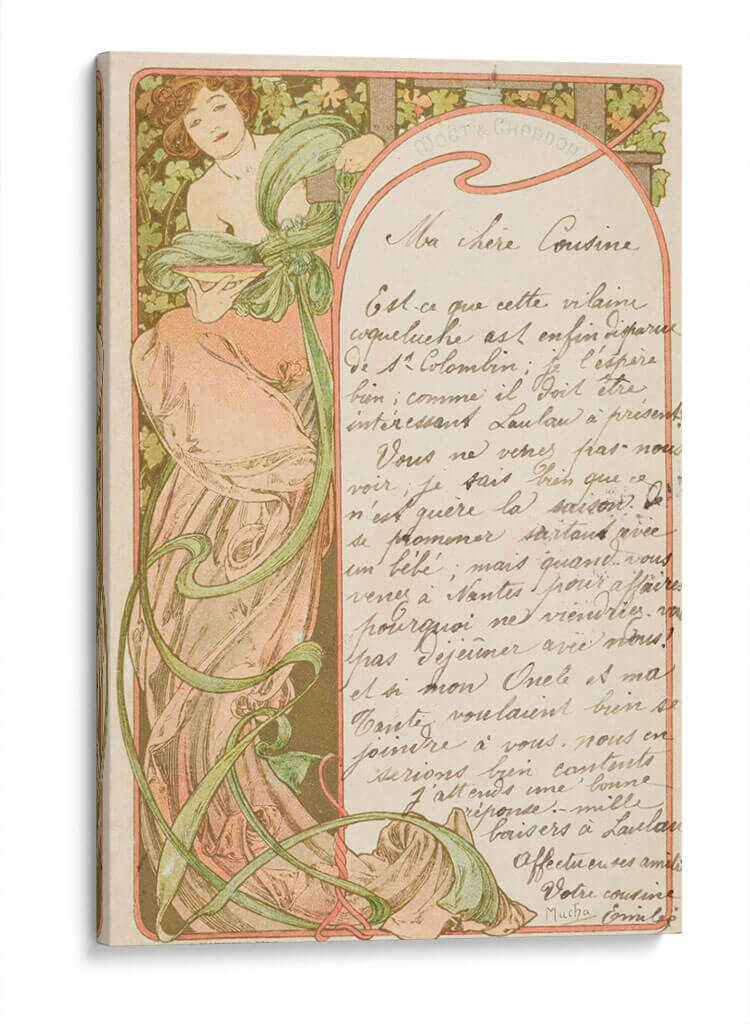 MOËT & CHANDON
Ma chère Cousine
Est-ce que cette vilaine
coqueluche est enfin disparue
de St. Colombin; je l'espère
bien; comme il doit être
intéressant Laulau à présent.
Vous ne venez pas nous
voir, je sais bien que ce
n'est guère la saison de
se promener surtout avec
un bébé; mais quand vous
venez à Nantes pour affaires
pourquoi ne viendriez-vo
pas déjeuner avec nous!
et si mon Oncle et ma
Tante voulaient bien se
joindre à vous. nous en
serions bien contents
j'attends une bonne
réponse.- mille
baisers à Laulau
Affectueuses amiti
Votre cousine
Mucha